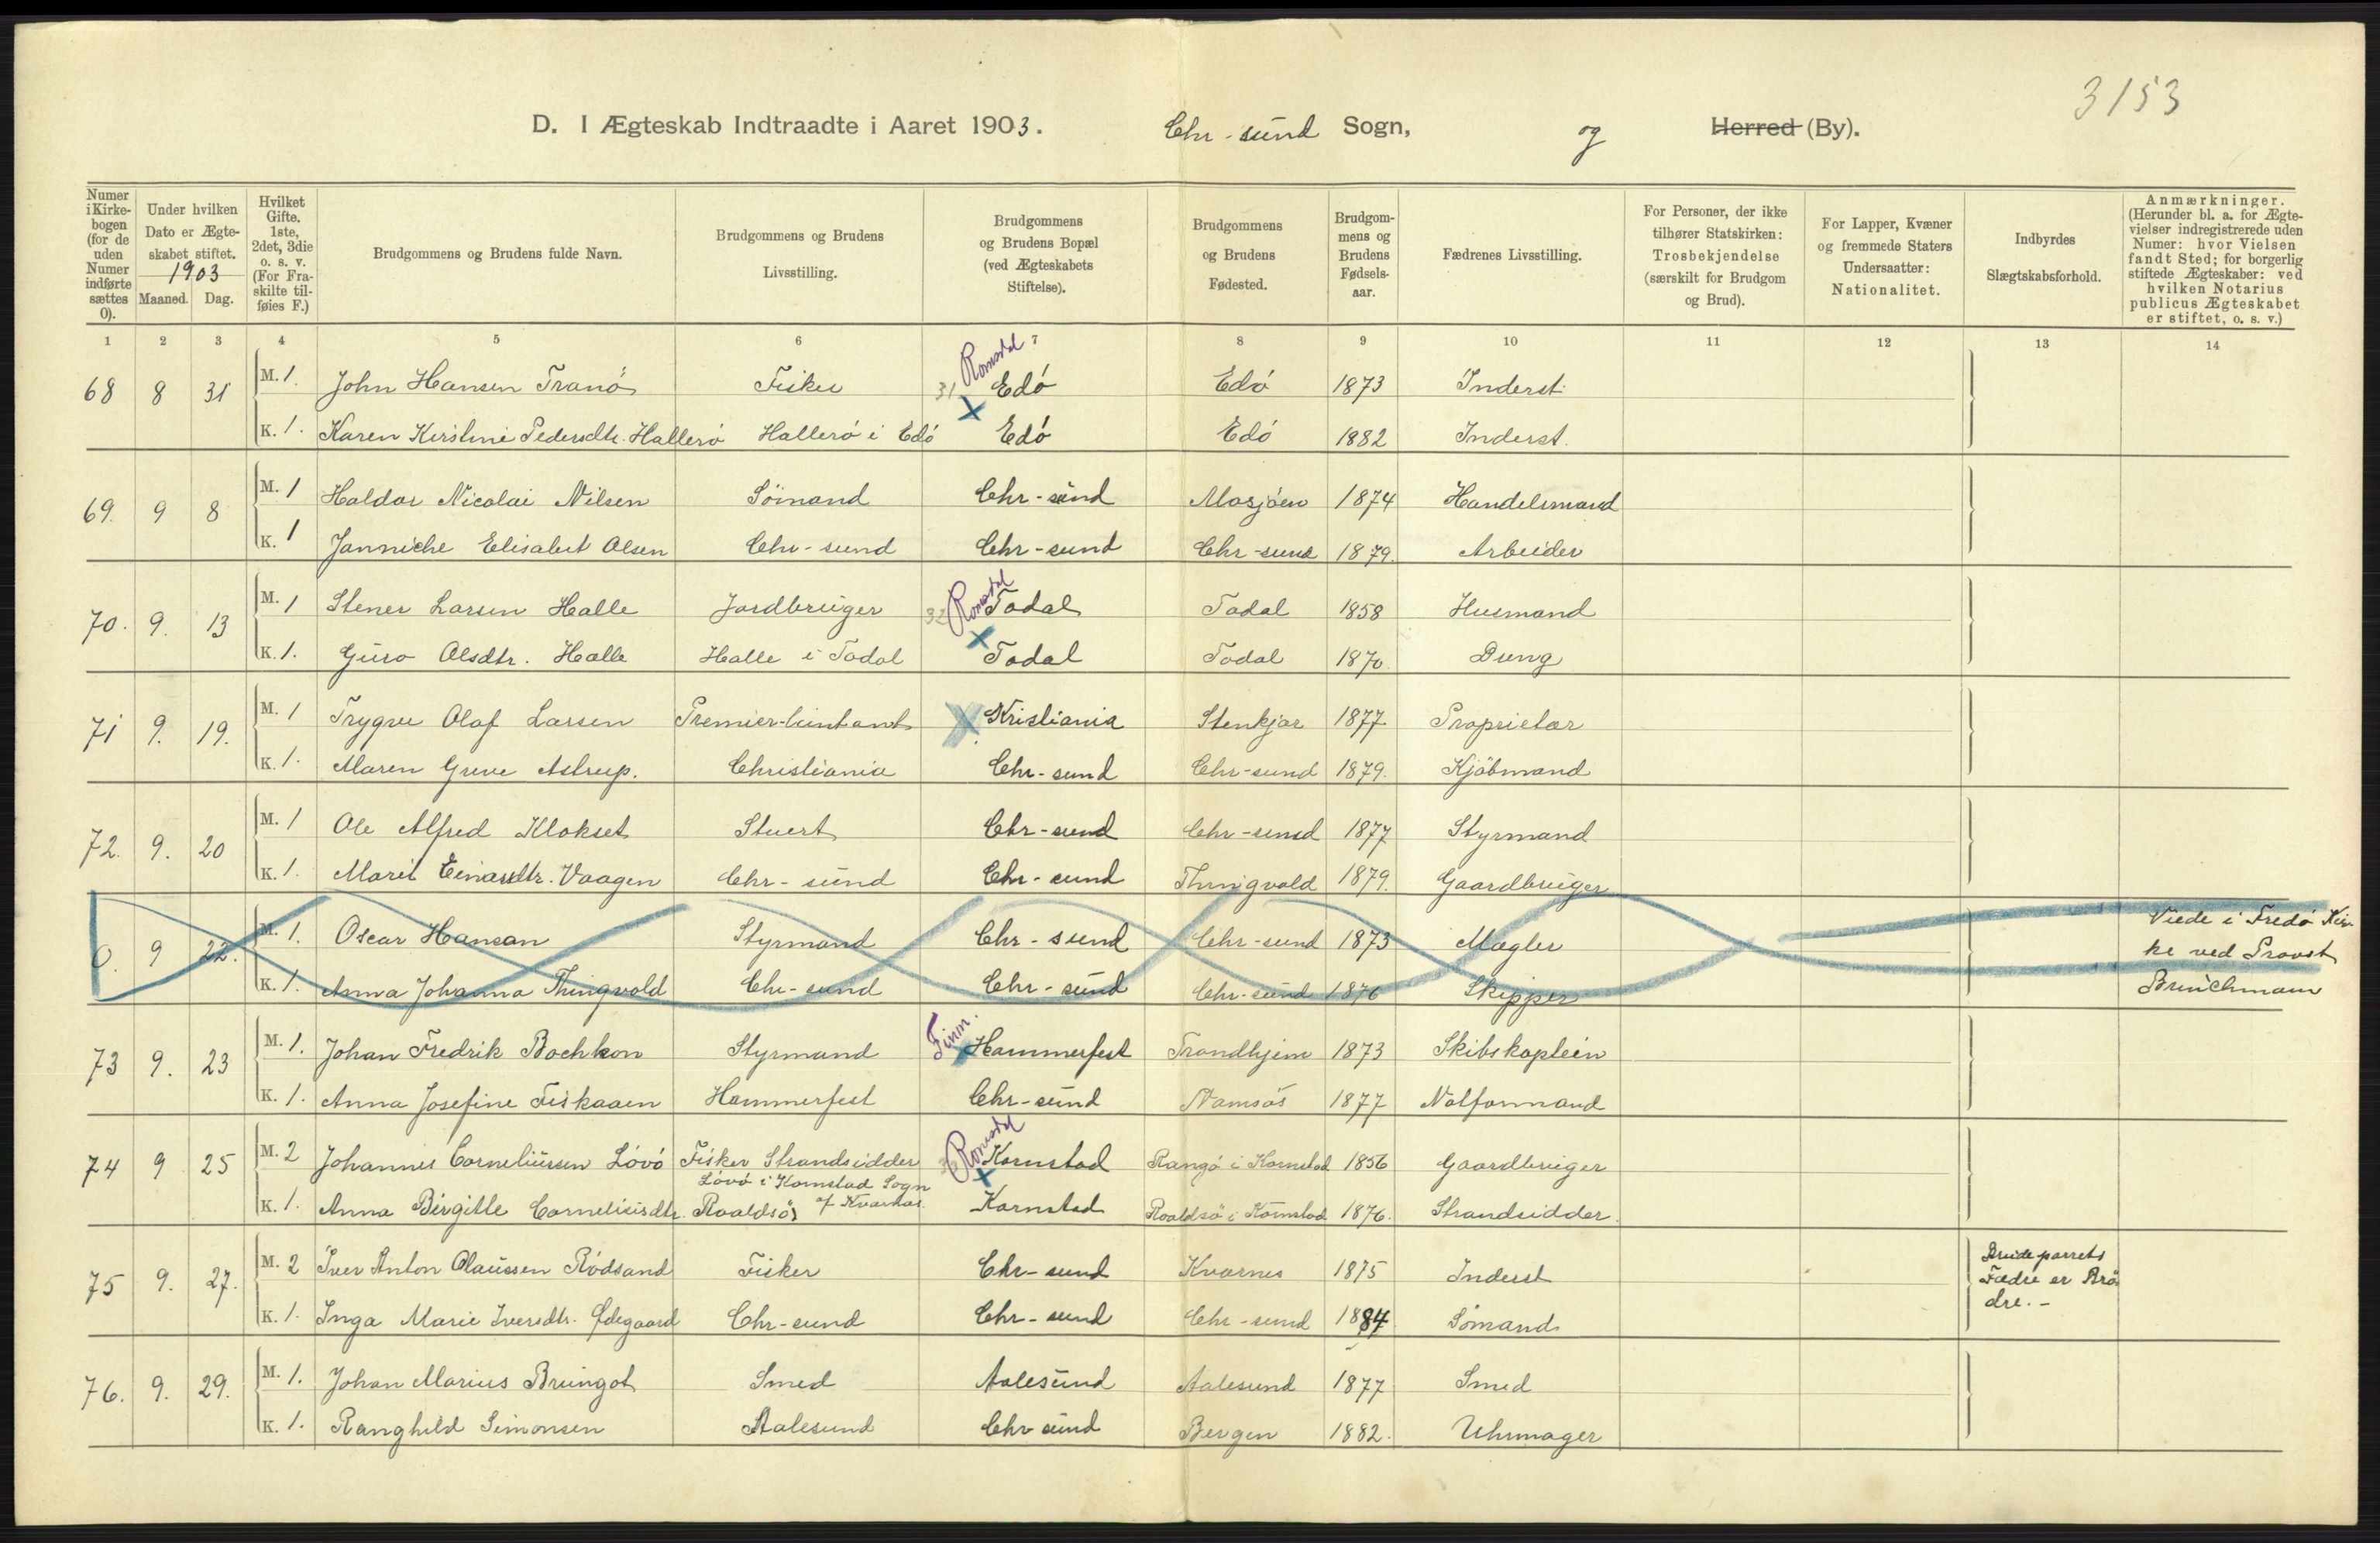 3153
D. I Ægteskab Indtraadte i Aaret 1903. Chr-sund Sogn, og Herred (By).
Numer i Kirkebogen (for de uden Numer indførte sættes 0).
Under hvilken Dato er Ægteskabet stiftet. 1903 Maaned. Dag.
Hvilket Gifte. 1ste, 2det, 3die o. s. v. (For Fraskilte tilføies F.)
Brudgommens og Brudens fulde Navn.
Brudgommens og Brudens Livsstilling.
Brudgommens og Brudens Bopæl (ved Ægteskabets Stiftelse).
Brudgommens og Brudens Fødested.
Brudgommens og Brudens Fødselsaar.
Fædrenes Livsstilling.
For Personer, der ikke tilhører Statskirken: Trosbekjendelse (særskilt for Brudgom og Brud).
For Lapper, Kvæner og fremmede Staters Undersaatter: Nationalitet.
Indbyrdes Slægtskabsforhold.
Anmærkninger. (Herunder bl. a. for Ægtevielser indregistrerede uden Numer: hvor Vielsen fandt Sted; for borgerlig stiftede Ægteskaber: ved hvilken Notarius publicus Ægteskabet er stiftet, o. s. v.)
1 2 3 4 5 6 7 8 9 10 11 12 13 14
68 8 31 M. 1. John Hansen Tranö Fisker 31 Romsdal Edö Edö 1873 Inderst
K. 1. Karen Kirstine Pedersdtr. Hallerö Hallerö i Edö Edö Edö 1882 Inderst.
69. 9 8 M. 1 Haldor Nicolai Nilsen Sömand Chr-sund Mosjöen 1874 Handelsmand
K. 1 Janniche Elisabet Olsen Chr-sund Chr-sund Chr-sund 1879. Arbeider
70. 9. 13 M. 1 Stener Larsen Halle Jordbruger 32 Romsdal Todal Todal 1858 Husmand
K. 1. Guro Olsdtr. Halle Halle i Todal Todal Todal 1870. Dreng
71 9. 19. M. 1 Trygve Olaf Larsen Premier-leintant Kristiania Stenkjær 1877 Proprietær
K. 1. Maren Greve Astrup. Christiania Chr-sund Chr-sund 1879. Kjöbmand
72. 9. 20 M. 1 Ole Alfred Klokset Stuert Chr-sund Chr-sund 1877 Styrmand
K. 1. Marit Einarsdtr. Vaagen Chr-sund Chr-sund Thingvold 1879. Gaardbruger
0. 9 22. M. 1. Oscar Hansen Styrmand Chr-sund Chr-sund 1873 Mægler Viede i Fredö Kir-
ke ved Provst
K. 1. Anna Johanna Thingvold Chr-sund Chr-sund Chr-sund 1876 Skipper Brüchmann
73 9. 23 M. 1. Johan Fredrik Bochkon Styrmand Finm. Hammerfest Trondhjem 1873 Skibskaptein
K. 1. Anna Josefine Fiskaaen Hammerfest Chr-sund Namsös 1877 Notformand
74 9 25 M. 2 Johannes Corneliussen Lövö Fisker Strandsidder Romsdal Kornstad Rangö i Kornstad 1856 Gaardbruger
Lövö i Kornstad Sogn
K. 1. Anna Birgitte Corneliusdtr. Roaldsö af Kvarnæs. Kornstad Roaldsö i Kornstad 1876. Strandsidder.
75 9. 27. M. 2 Iver Anton Olaussen Rödsand Fisker Chr-sund Kvarnes 1875 Inderst Brudeparrets
Fædre er Brö
dre. -
K. 1. Inga Marie Iversdtr. Ødegaard Chr-sund Chr-sund Chr-sund 1884 Sömand
76. 9. 29. M. 1. Johan Marius Brungot Smed Aalesund Aalesund 1877 Smed
K. 1. Ranghild Simonsen Aalesund Chr sund Bergen 1882. Uhrmager